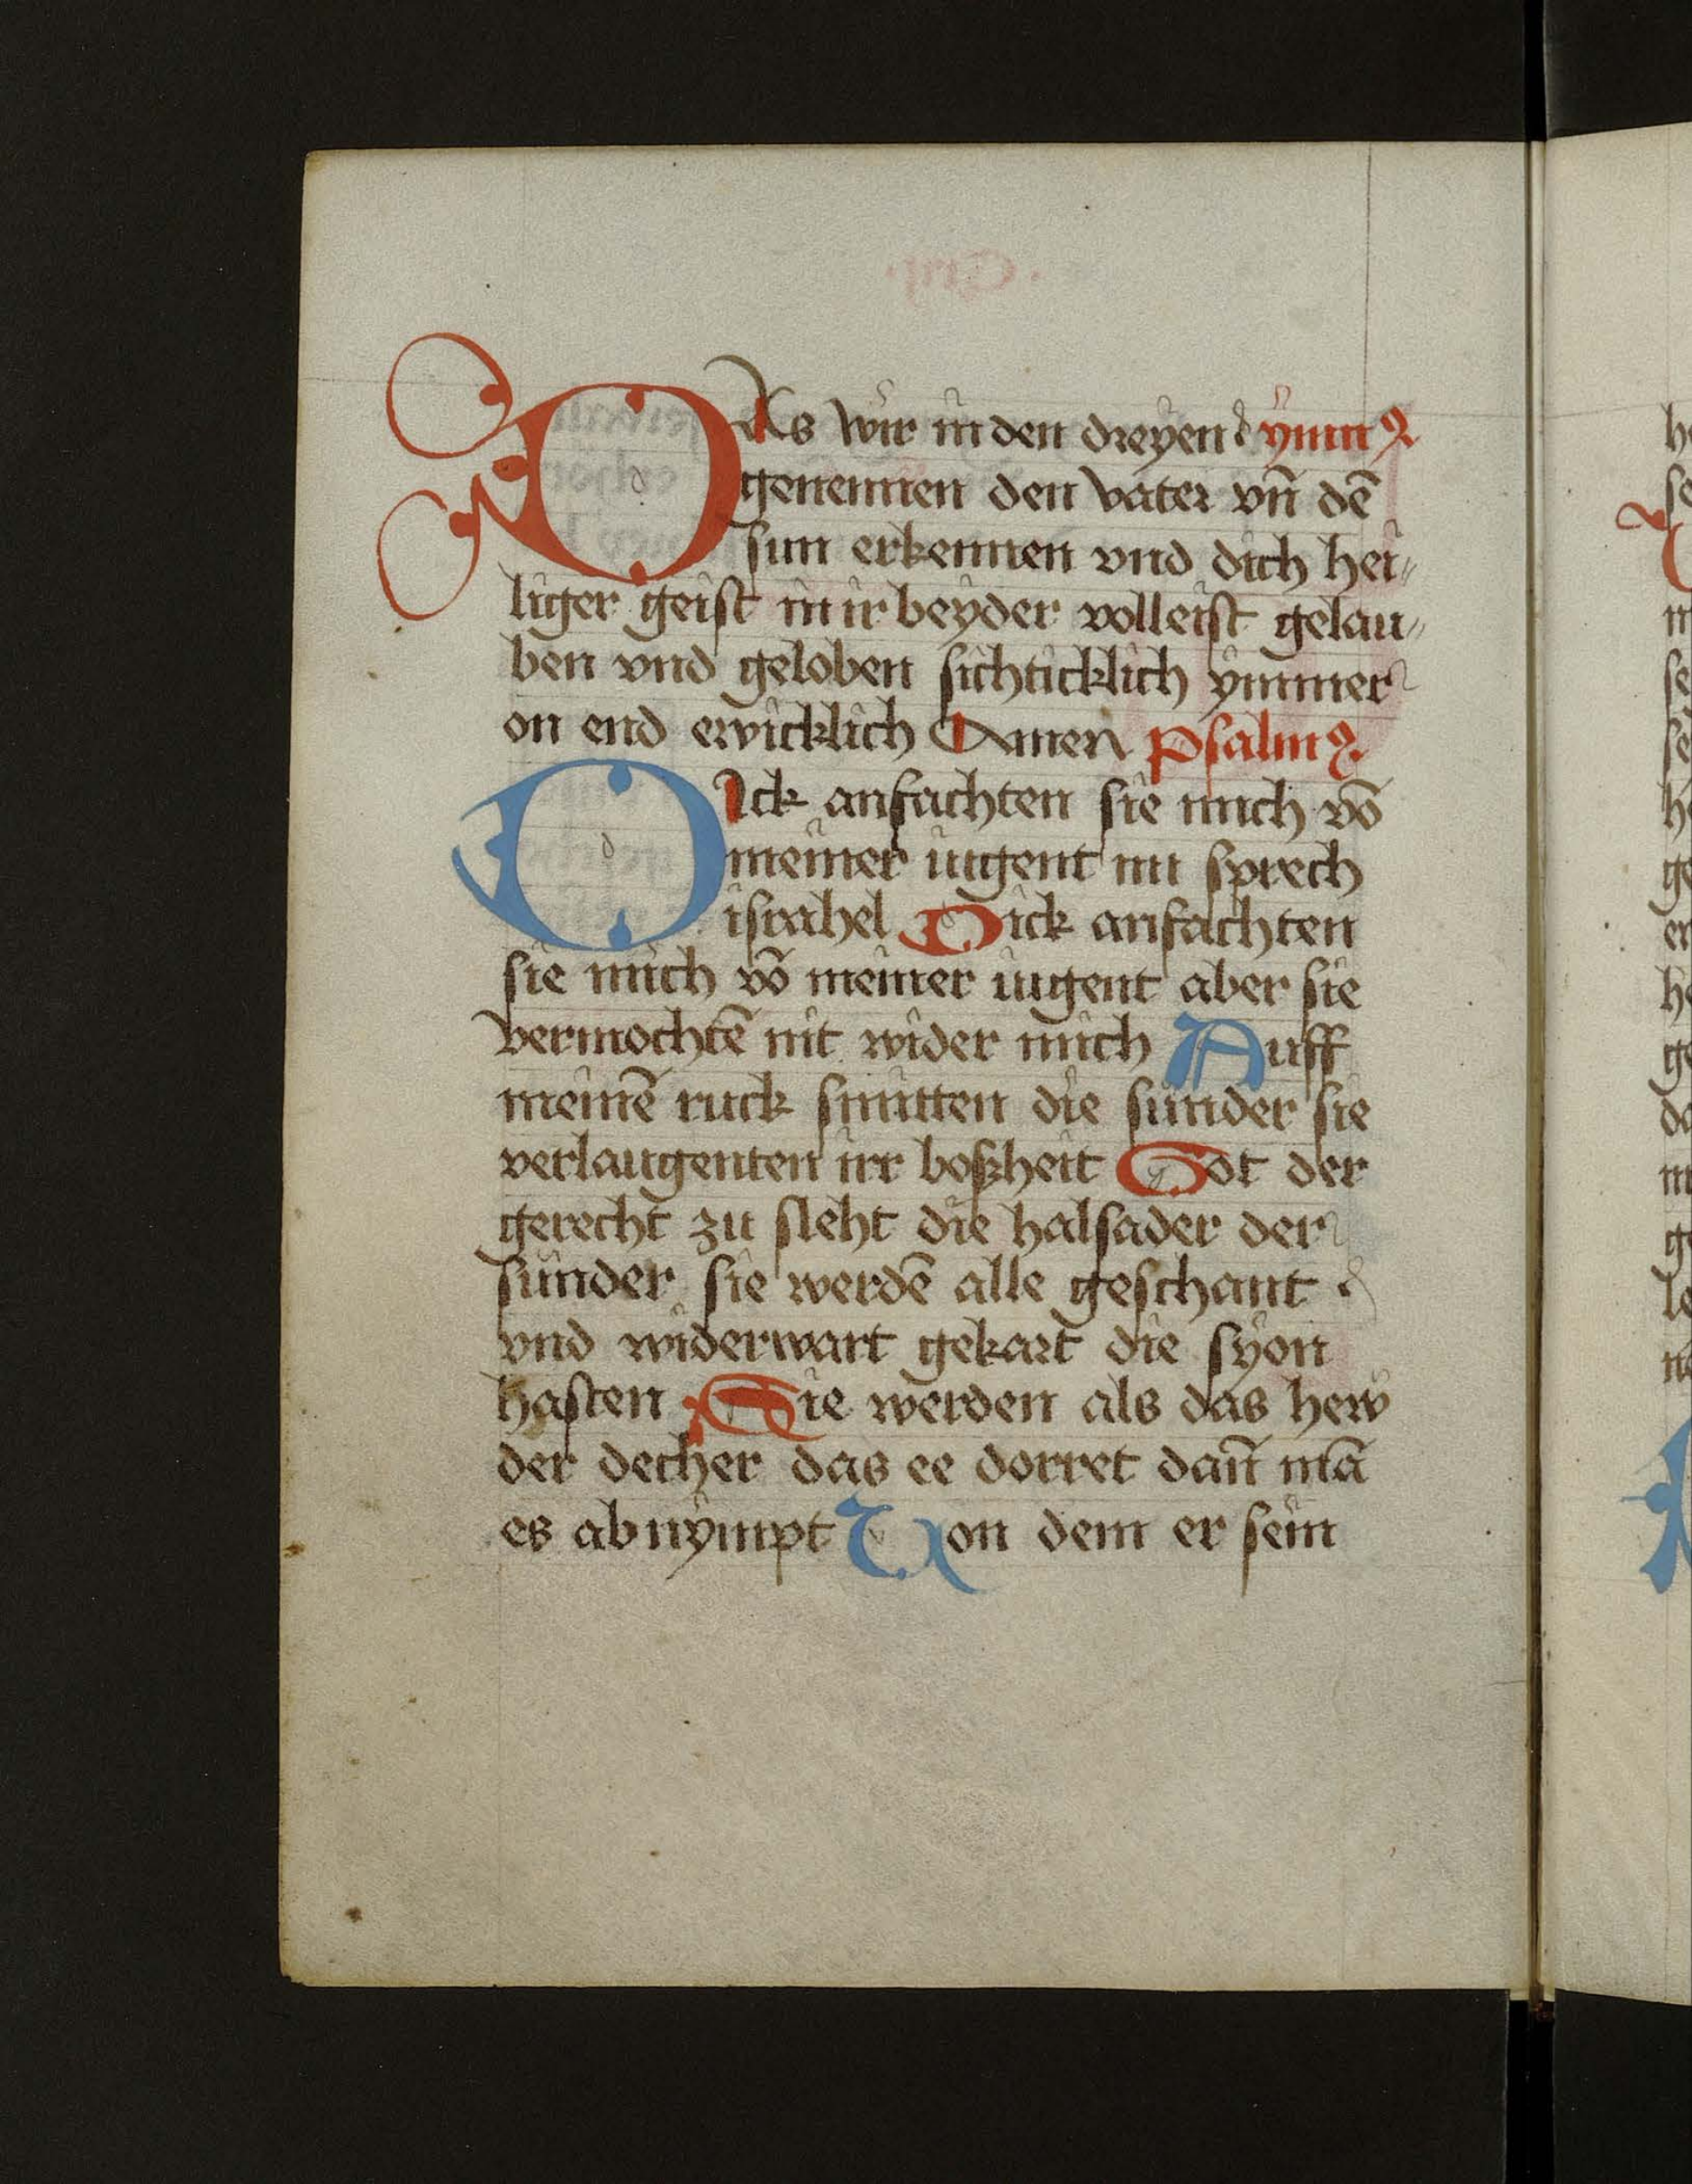 DAs wir in den dreyen ymnꝰ
genennen den vater vn̄ dē
sun erkennen vnd dich hei⸗
liger geist in ir beyder volleist gelau⸗
ben vnd geloben sichticklich ymmer
on end ewicklich Amen Psalmꝰ
DIck anfachten sie mich vō
meiner iugent nu sprech
israhel Dick anfachten
sie mich vō meiner iugent aber sie
vermochtē nit wider mich Auff
meinē ruck smitten die sunder sie
verlaugenten irr boßheit Got der
gerecht zu sleht die halsader der
sunder sie werdē alle geschant
vnd widerwart gekart die syon
hasten Sie werden als das hew
der decher das ee dorret dan̄ mā
es abnympt Von dem er sein